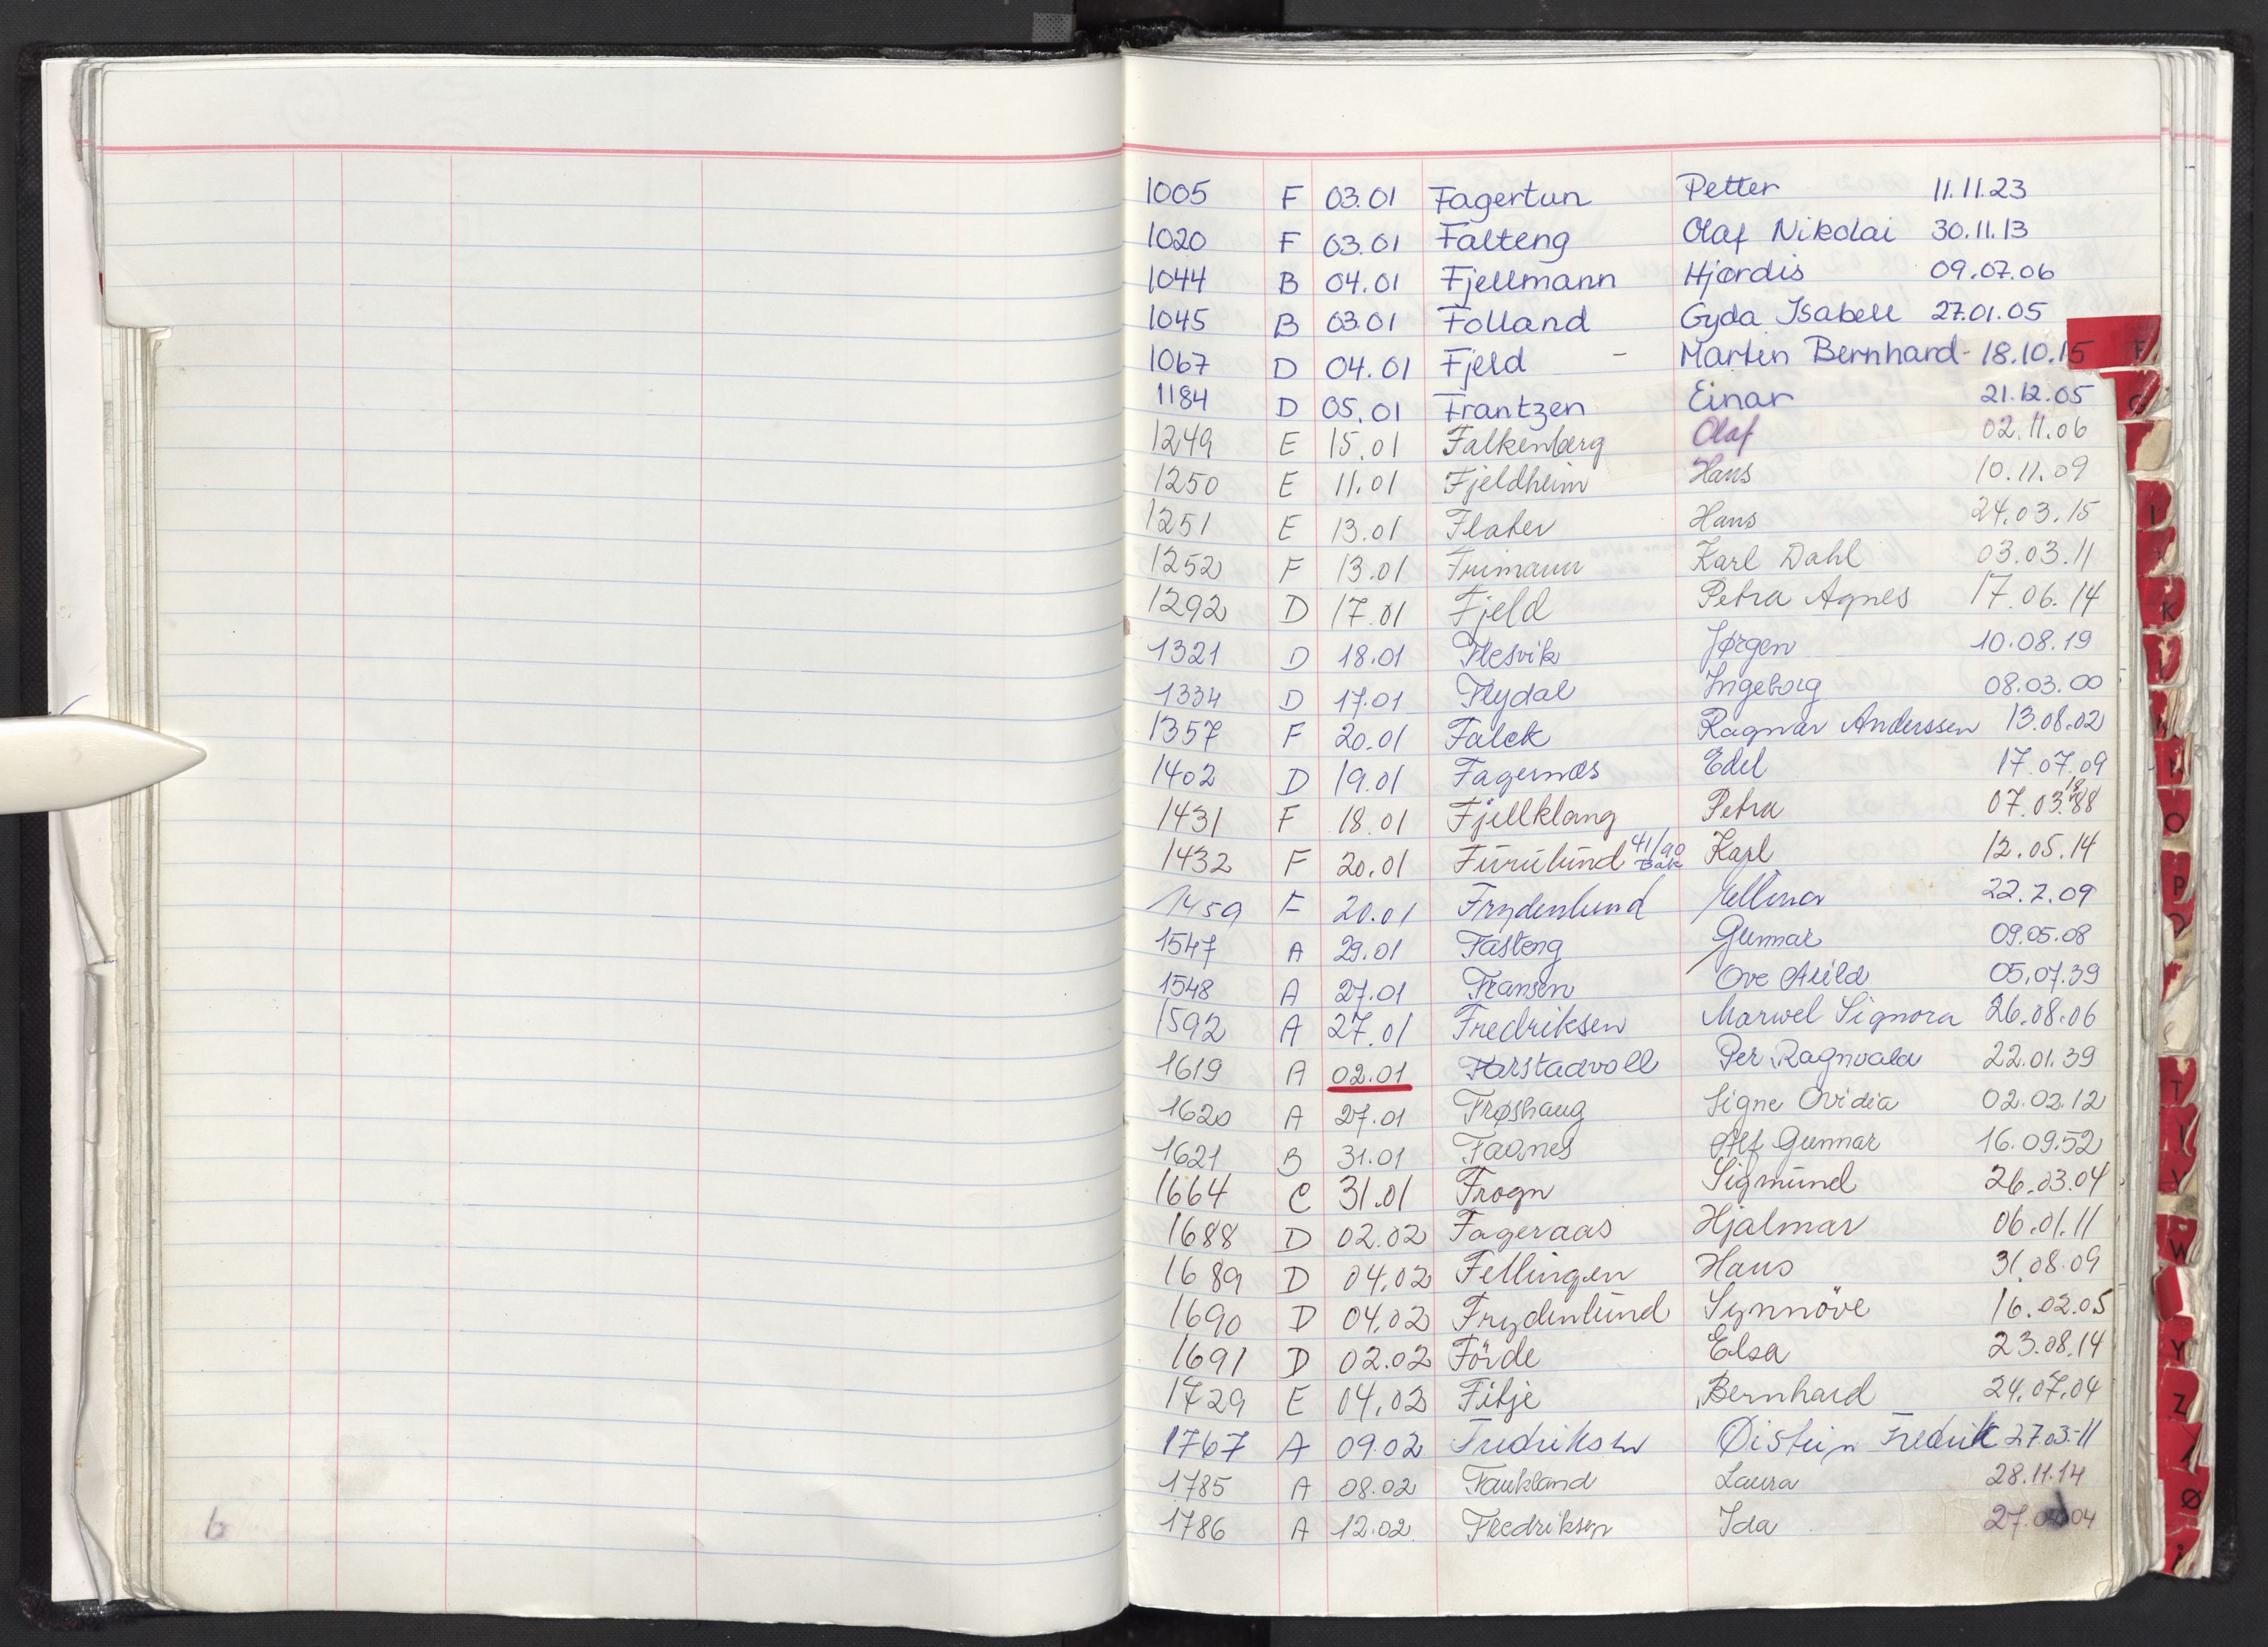 1005 F 03.01 Fagertun Petter 11.11.23
1020 F 03.01 Falteng Olaf Nikolai 30.11.13
1044 B 04.01 Fjellmann Hjørdis 09.07.06
1045 B 03.01 Folland Gyda Isabell 27.01.05
1067 D 04.01 Fjeld - Martin Bernhard - 18.10.15
1184 D 05.01 Frantzen Einar 21.12.05
1249 E 15.01 Falkenberg Olaf 02.11.06
1250 E 11.01 Fjeldheim Hans 10.11.09
1251 E 13.01 Flaten Hans 24.03.15
1252 F 13.01 Frimann Karl Dahl 03.03.11
1292 D 17.01 Fjeld Petra Agnes 17.06.14
1321 D 18.01 Flesvik Jørgen 10.08.19
1334 D 17.01 Flydal Ingeborg 08.03.00
1357 F 20.01 Falck Ragnar Anderssen 13.08.02
1402 D 19.01 Fagernes Edel 17.07.09
1431 F 18.01 Fjellklang Petra 07.03.1888
1432 F 20.01 Furulund 41/90 Bak Karl 12.05.14
1459 F 20.01 Frydenlund Ellinor 22.7.09
1547 A 29.01 Fasteng Gunnar 09.05.08
1548 A 27.01 Fransen Ove Arild 05.07.39
1592 A 27.01 Fredriksen Marwel Signora 26.08.06
1619 A 02.01 Farstadvoll Per Ragnvald 22.01.39
1620 A 27.01 Frøshaug Signe Ovidia 02.02.12
1621 B 31.01 Fagnes Alf Gunnar 16.09.52
1664 C 31.01 Frogn Sigmund 26.03.04
1688 D 02.02 Fageraas Hjalmar 06.01.11
1689 D 04.02 Fellingen Hans 31.08.09
1690 D 04.02 Frydenlund Synnöve 16.02.05
1691 D 02.02 Förde Elsa 23.08.14
1729 E 04.02 Fitje Bernhard 24.07.04
1767 A 09.02 Fredriksen Øistein Fredrik 27.03.11
1785 A 08.02 Faukland Laura 28.11.14
1786 A 12.02 Fredriksen Ida